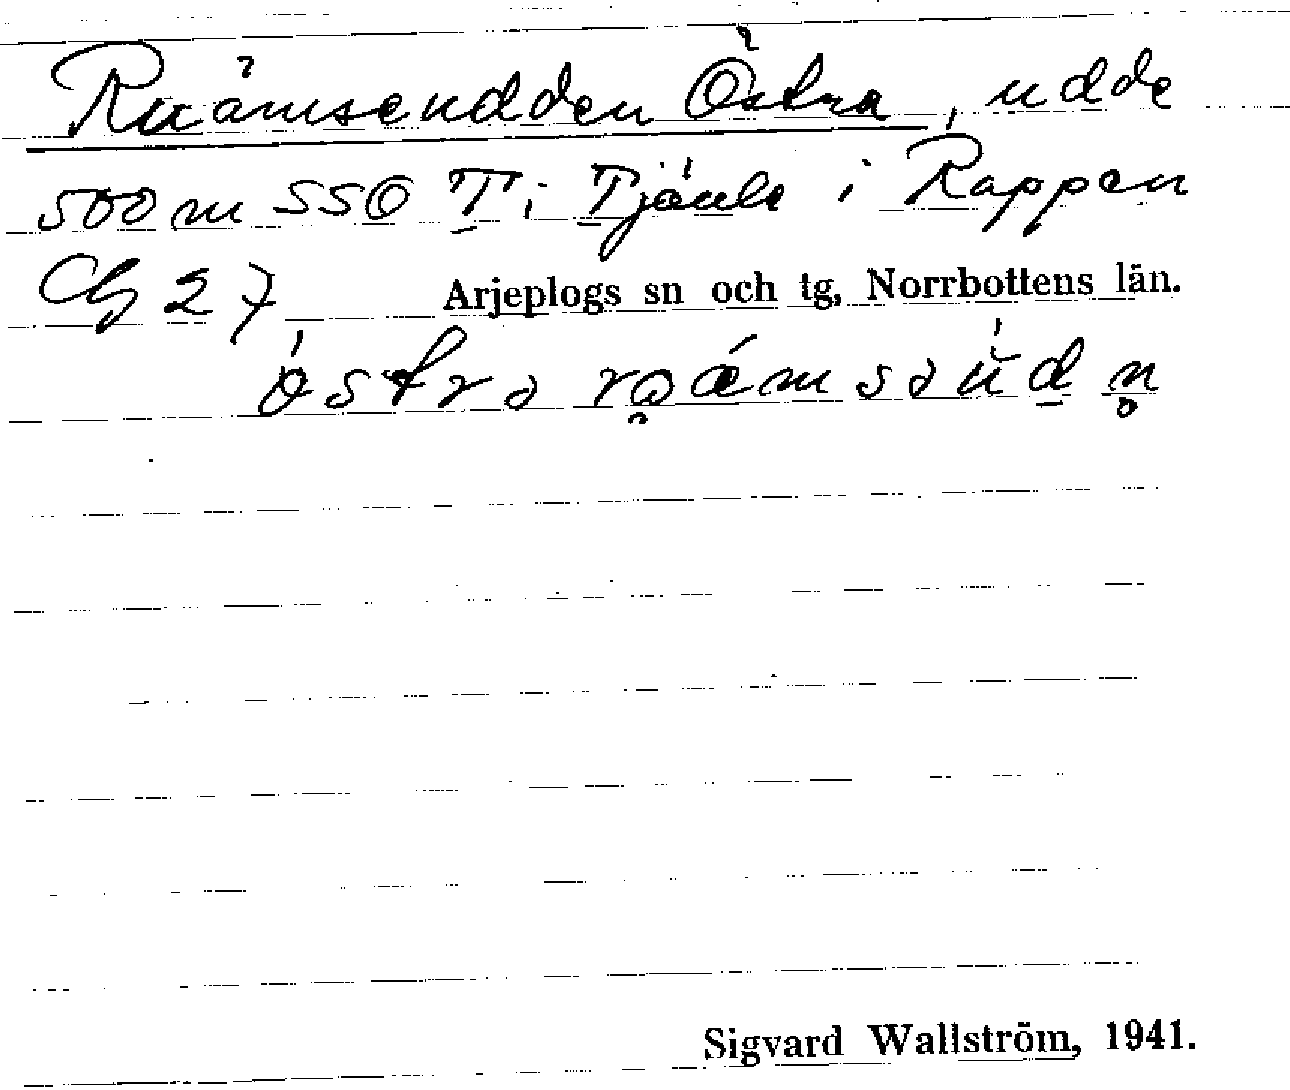 Ruämseudden Östra, udde
500 m SSO T i Tjäule i Rappen
Cg 27 Arjeplogs sn och tg, Norrbottens län.
Sigvard Wallström, 1941.